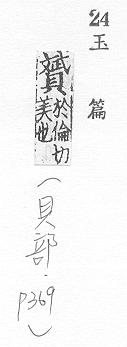 24
玉篇
贇於倫切
美也
（貝部．
P369）